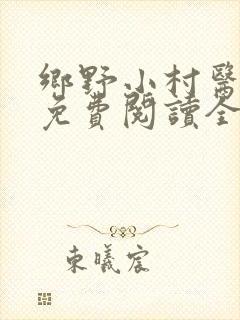 鄉野小村醫
免費閱讀全
東曦宸